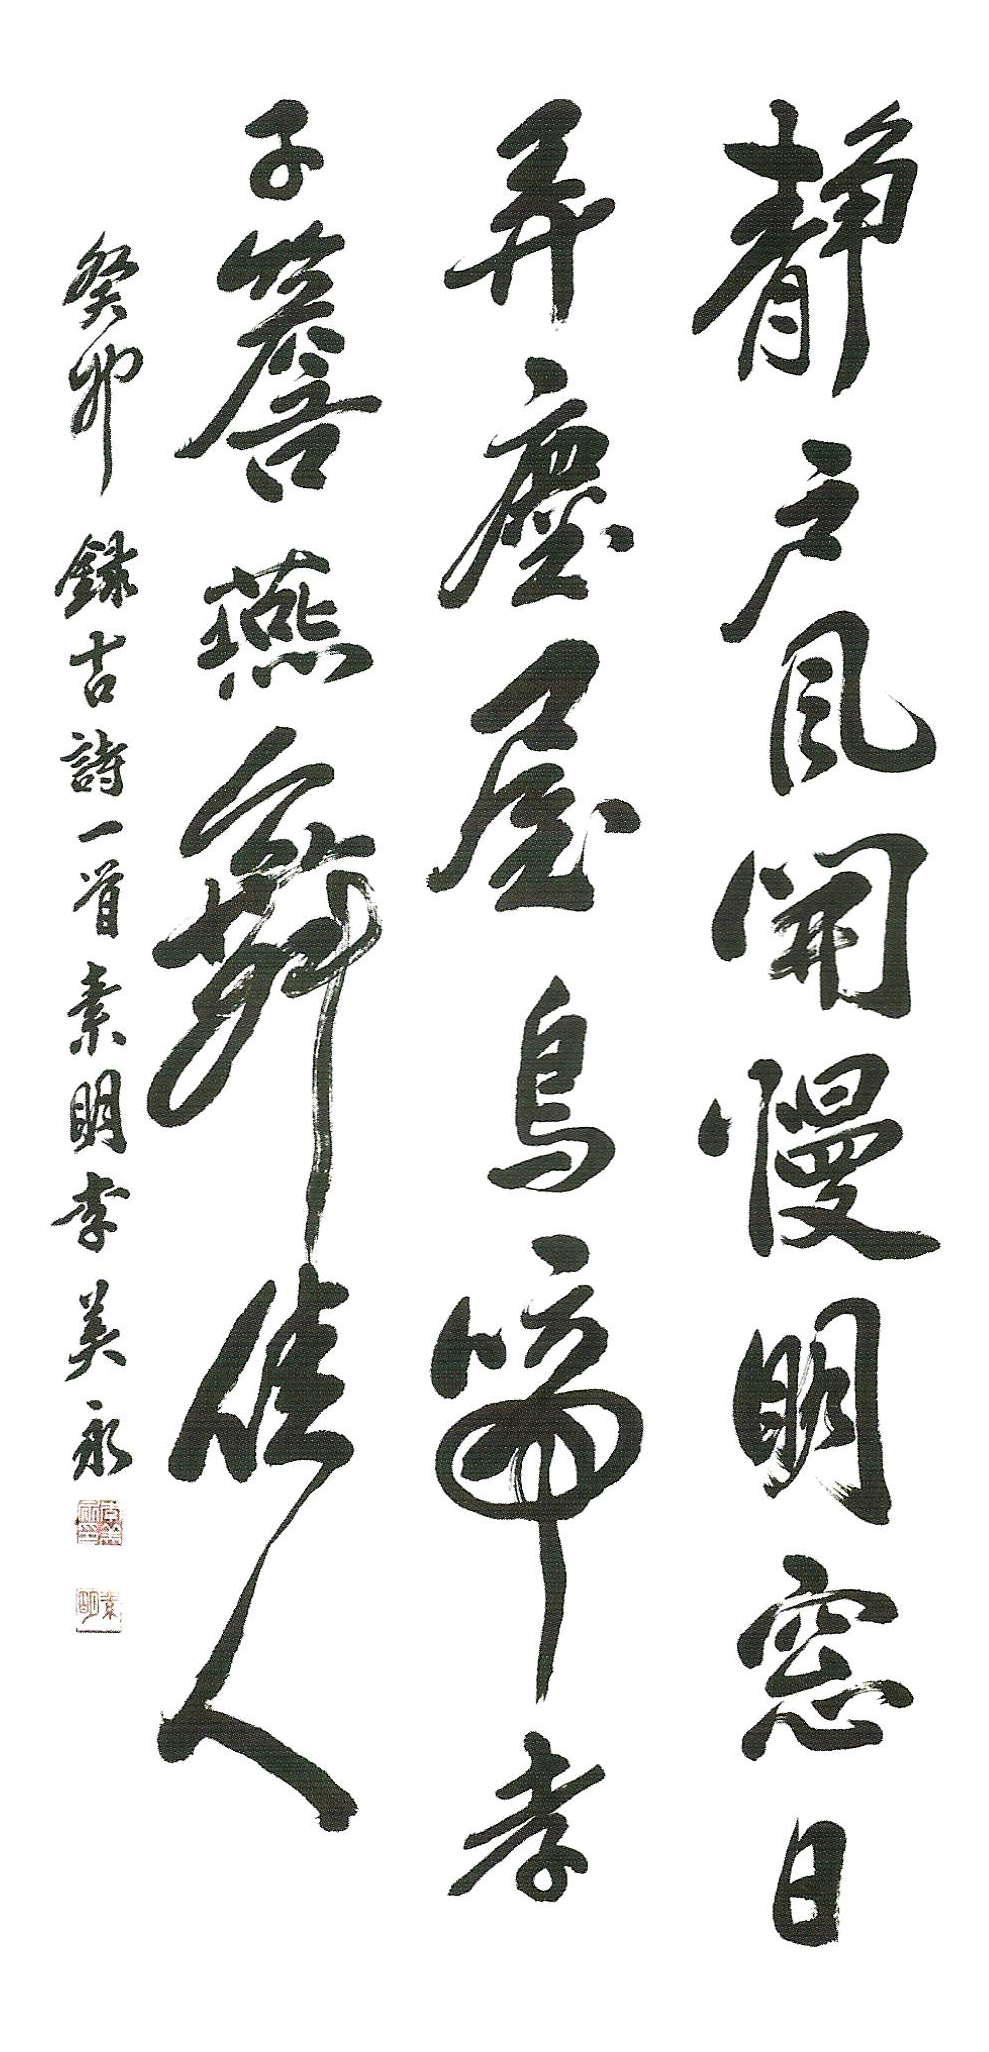 靜戶風開慢明窓日
弄塵屋烏啼孝
子簷燕舞佳人
癸卯 錄古詩一首 素明 李美永